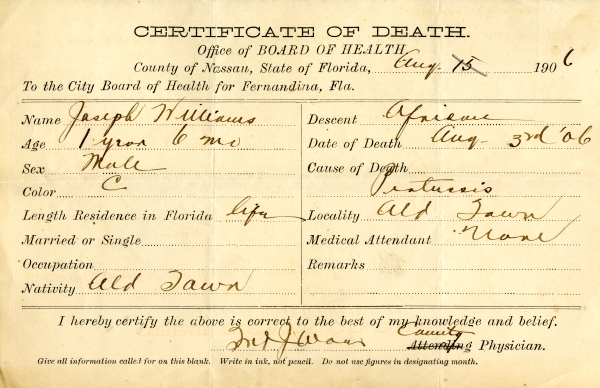 CERTIFICATE OF DEATH.
Office of BOARD OF HEALTH
County of Nassau, State of Florida, Aug. 15 1906
To the City Board of Health for Fernandina, Fla.
Name Joseph Williams
Age 1 year 6 mo
Sex Male
Color C
Length Residence in Florida life
Married or Single
Occupation
Nativity Old Town
Descent African
Date of Death Aug. 3rd '06
Cause of Death
Pertussis
Locality Old Town
Medical Attendant None
Remarks
I hereby certify the above is correct to the best of my knowledge and belief.
County
Attending Physician.
Give all information called for on this blank. Write in ink, not pencil. Do not use figures in designating month.